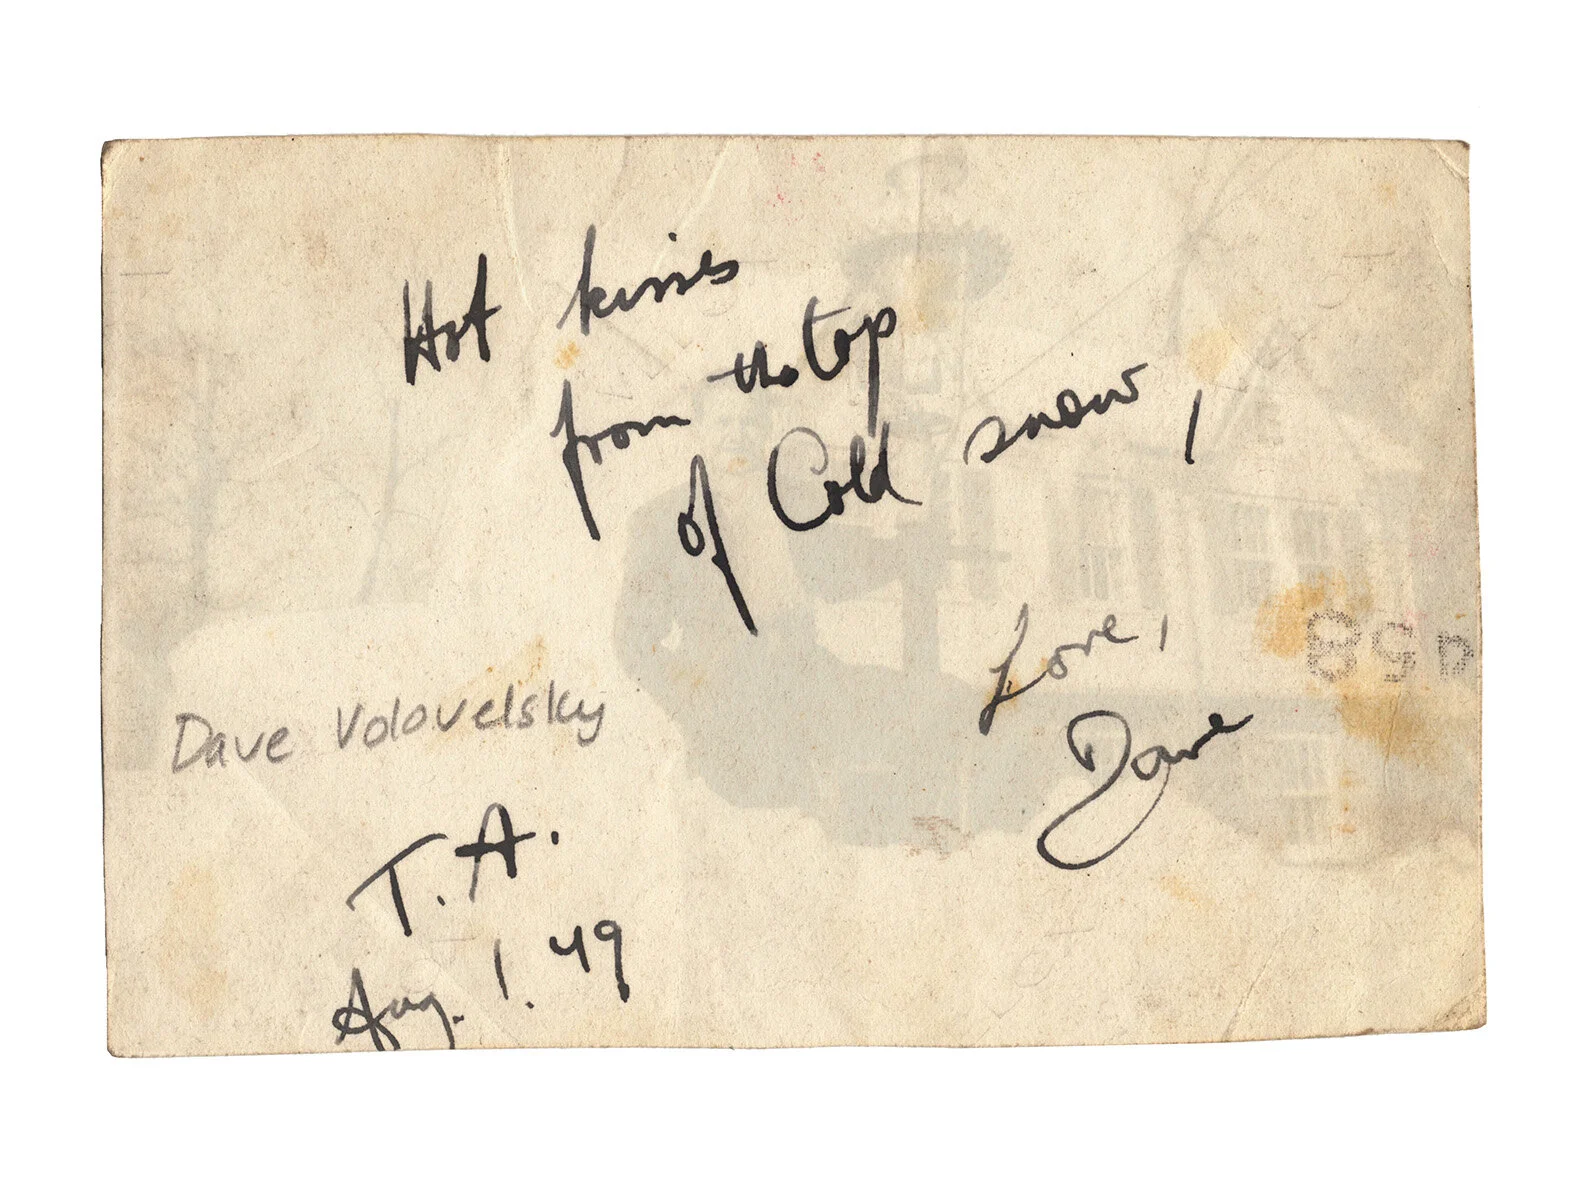 Hot kisses
from the top
of Cold snow,
Love,
Dave
Dave Volovelsky
T.A.
Aug. 1. 49